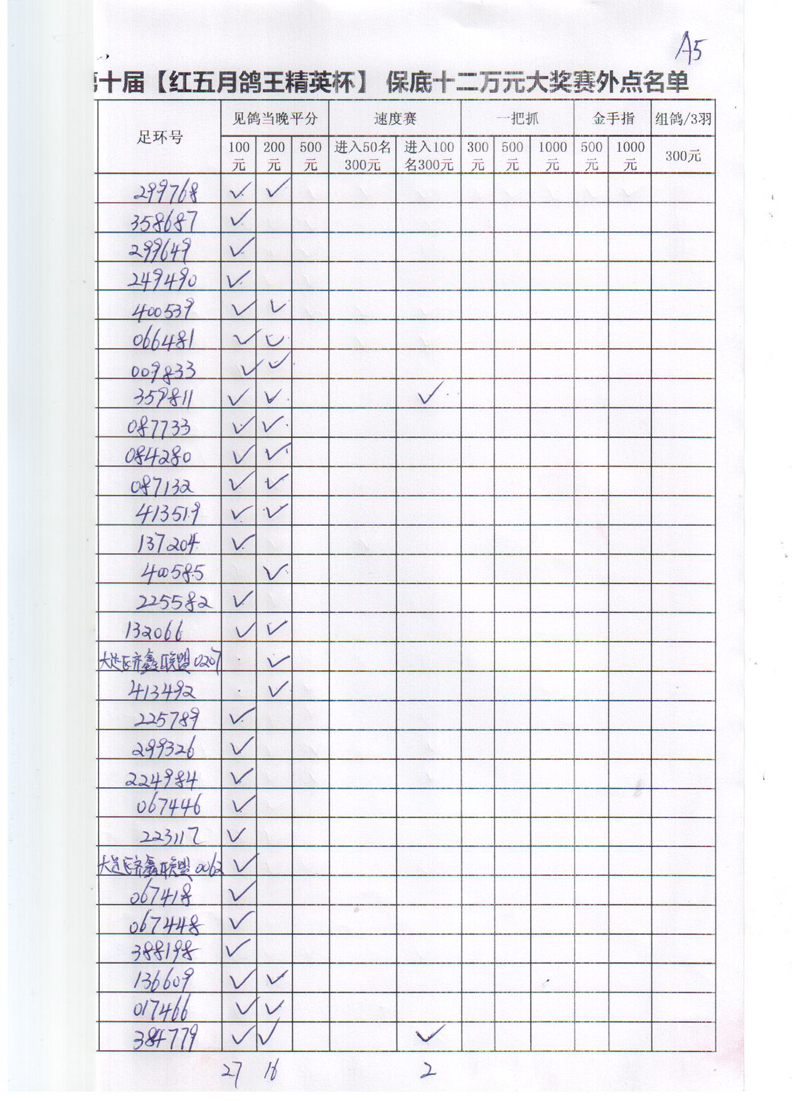 A5
第十届【红五月鸽王精英杯】 保底十二万元大奖赛外点名单
足环号 见鸽当晚平分 速度赛 一把抓 金手指 组鸽/3羽
100元 200元 500元 进入50名300元 进入100名300元 300元 500元 1000元 500元 1000元 300元
299768 ✓ ✓
358687 ✓
299649 ✓
249490 ✓
400539 ✓ ✓
066481 ✓ ✓
009833 ✓ ✓
359811 ✓ ✓ ✓
087733 ✓ ✓
084280 ✓ ✓
087132 ✓ ✓
413519 ✓ ✓
137204 ✓
400585 ✓
225582 ✓
132066 ✓ ✓
联盟0207 ✓
413492 ✓
225789 ✓
299326 ✓
224984 ✓
067446 ✓
223117 ✓
联盟0062 ✓
067418 ✓
067448 ✓
388198 ✓
136609 ✓ ✓
017466 ✓ ✓
384779 ✓ ✓ ✓
27 16 2